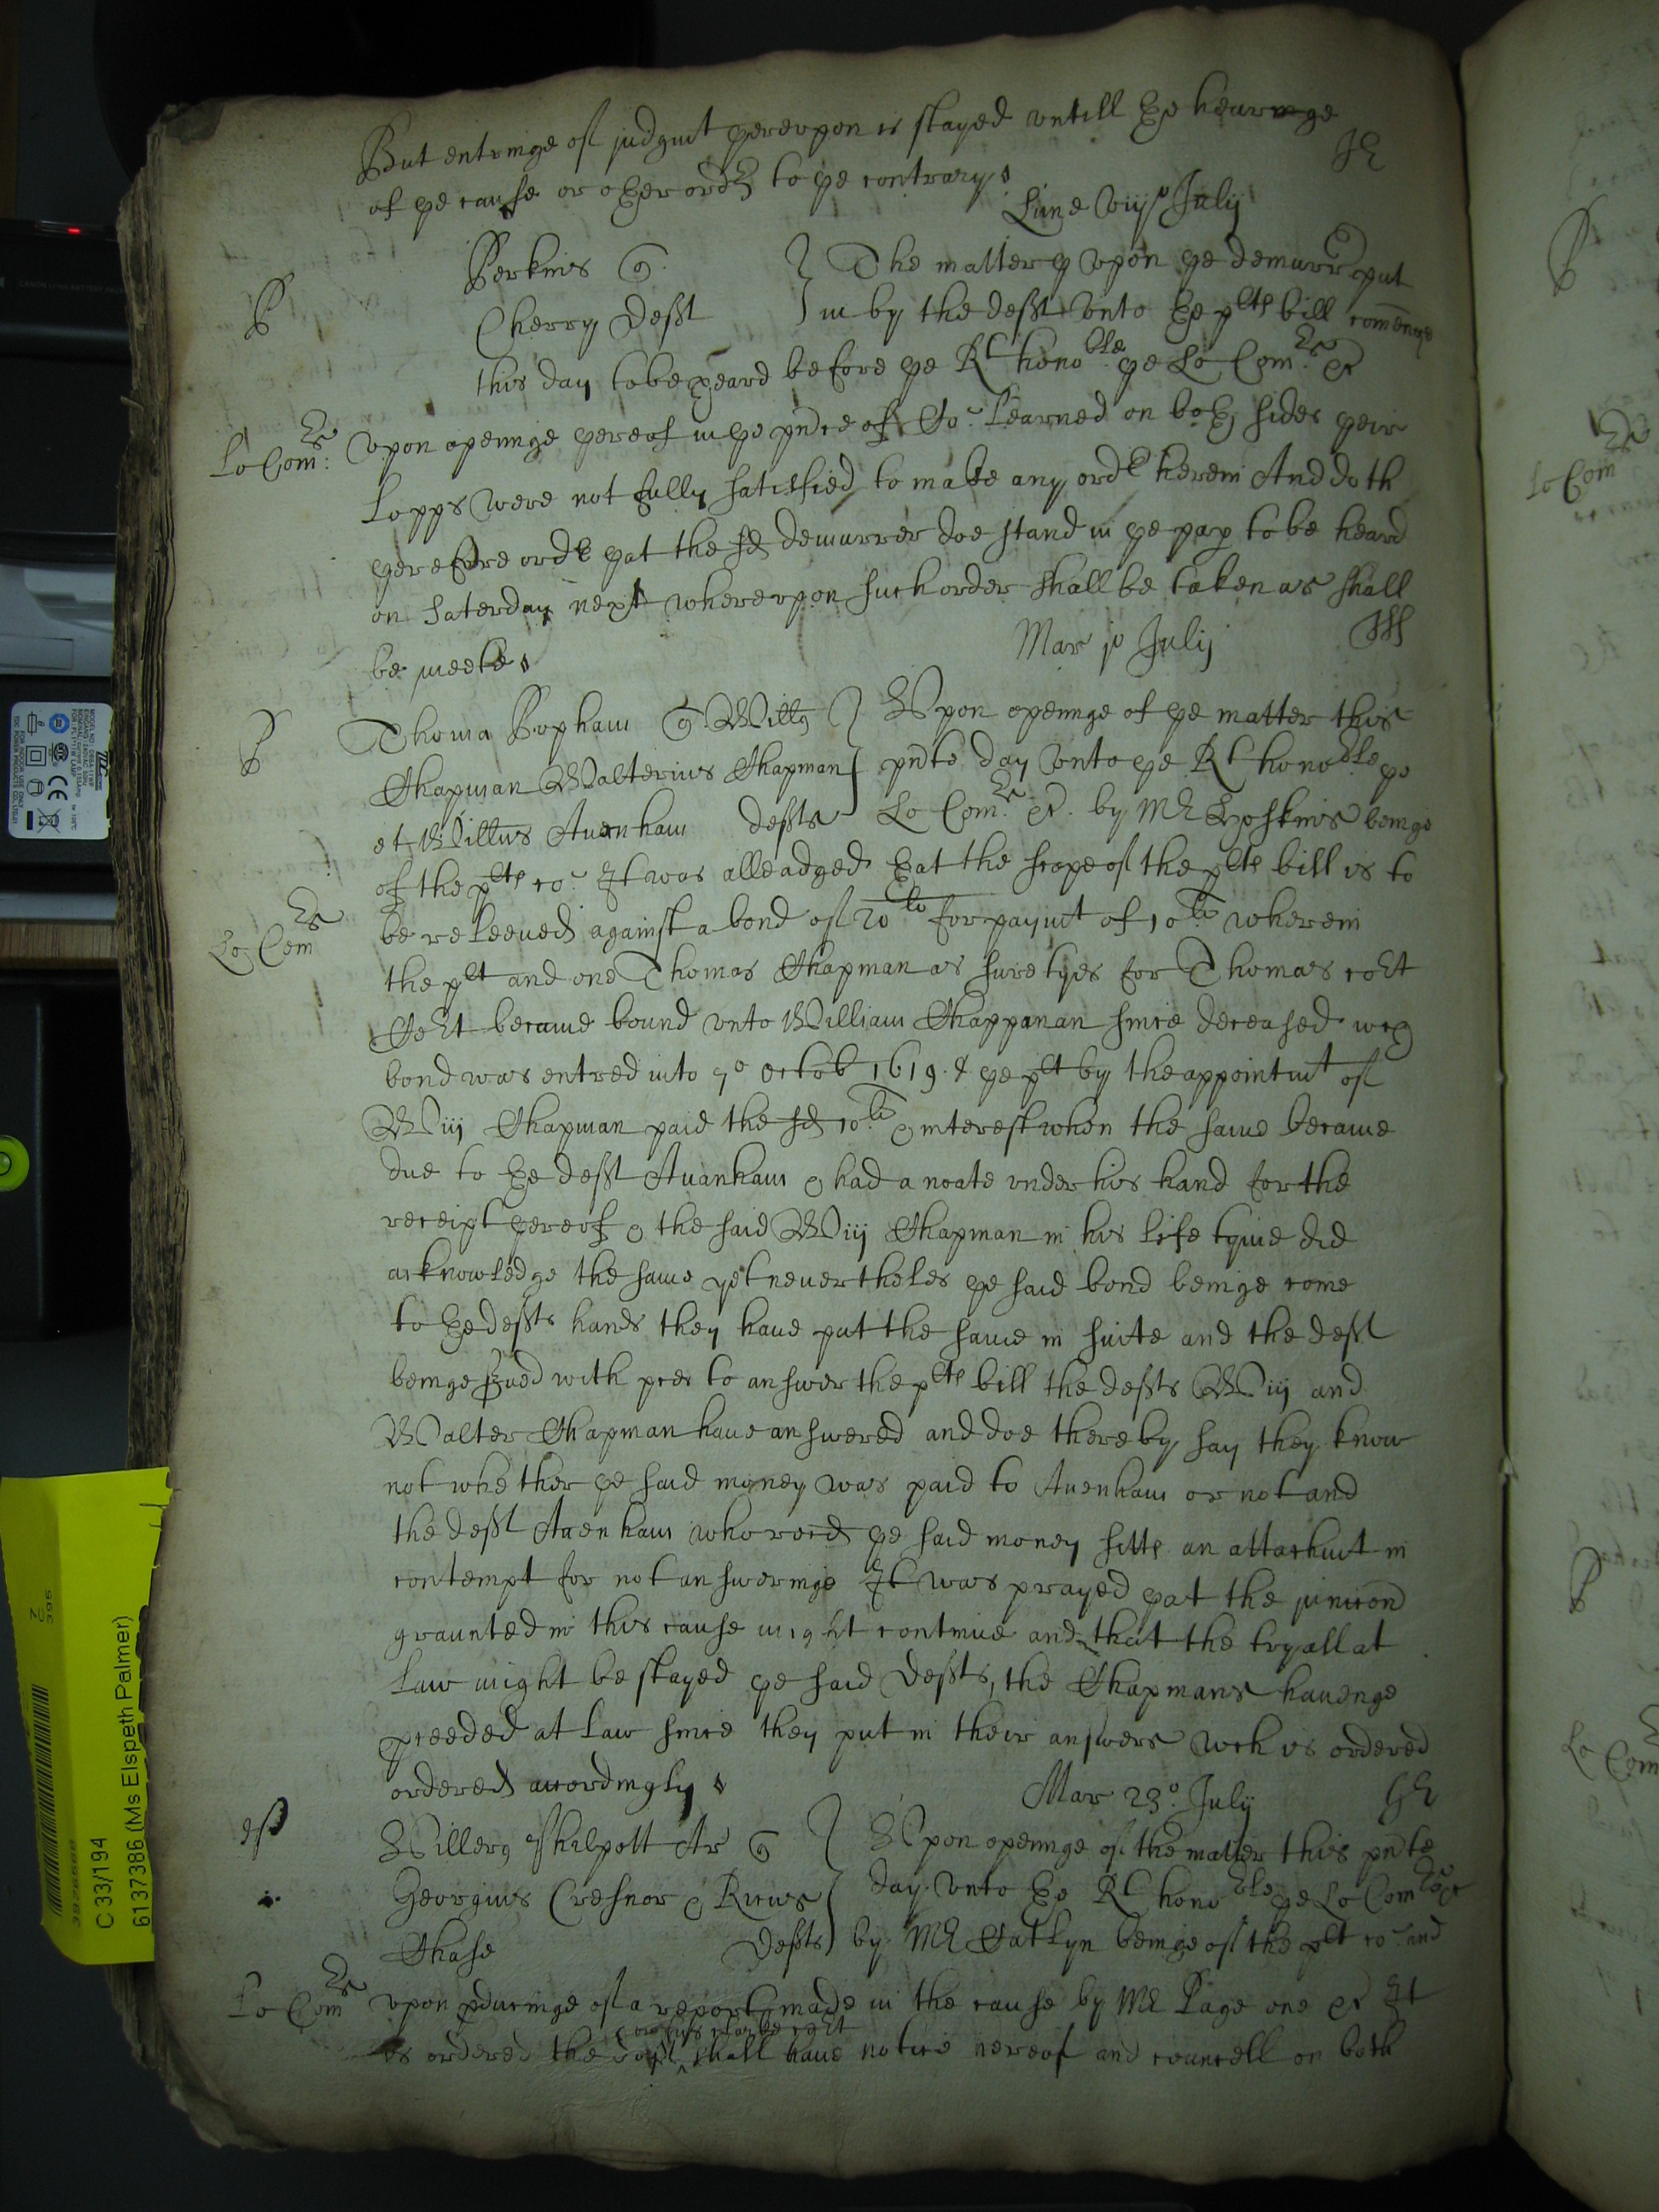 But entringe of judgmt thereupon is stayed untill the hearinge
of the cause or other ordr to the contrary
Lune viijo Julij
P
Perkins q
Cherry Deft
The matter upon the demurrer put
in by the deft unto the plts bill cominge
this day to be heard before the Rt honoble the Lo Comrs &c
Lo Comrs
upon openinge thereof in the pnce of Co: learned on both sides their
Lopps were not fully satisfied to make any ordr herein And doth
therefore ordr that the sd demurrer doe stand in the pap to be heard
on Saterday next whereupon such order shall be taken as shall
be meete
Mar jo Julij
P
Thoma Popham q Willus
Chapman Walterius Chapman
et Willus Auenham defts
Upon openinge of the matter this
pnte day unto the Rt honoble the
Lo Comrs &c. by Mr Hoskins beinge
of the plts co: It was alleadged that the scope of the plts bill is to
Lo Comrs
be releeued against a bond of 20li for paymt of 10li wherein
the plt and one Thomas Chapman as suretyes for Thomas
became bound unto William Chapman since deceased wch
bond was entred into 7o Octob 1619 & the plt by the appointmt of
Wm Chapman paid the sd 10li & interest when the same became
due to the deft Auanham & had a noate under his hand for the
receipt thereof & the said Wm Chapman in his life tyme did
acknowledge the same yet neuertheles the said bond beinge come
to the defts hands they haue put the same in suite and the deft
beinge srued with pces to answer the plts bill the defts Wm and
Walter Chapman haue answered and doe thereby say they know
not whether the said money was paid to Auenham or not and
the deft Auenham who recd the said money sitts an attachmt in
contempt for not answeringe It was prayed that the iniuccon
graunted in this cause might continue and that the tryall at
Law might be stayed the said Defts, the Chapmans hauenge
pceeded at Law since they put in their answers wch is ordered
ordered accordingly
Mar 23o July
Willus Philpott Ar q
Georgius Cresnor & Ricus
Chase Defts
Upon openinge of the matter this pnte
day unto the Rt honoble the Lo Comrs &c
by Mr Catlyn beinge of the plt co: and
Lo Comrs
upon pducinge of a report made in the cause by Mr Page one &c It
is ordered the deft shall haue notice hereof and councell on both
C 33/194
6137386 (Ms Elspeth Palmer)